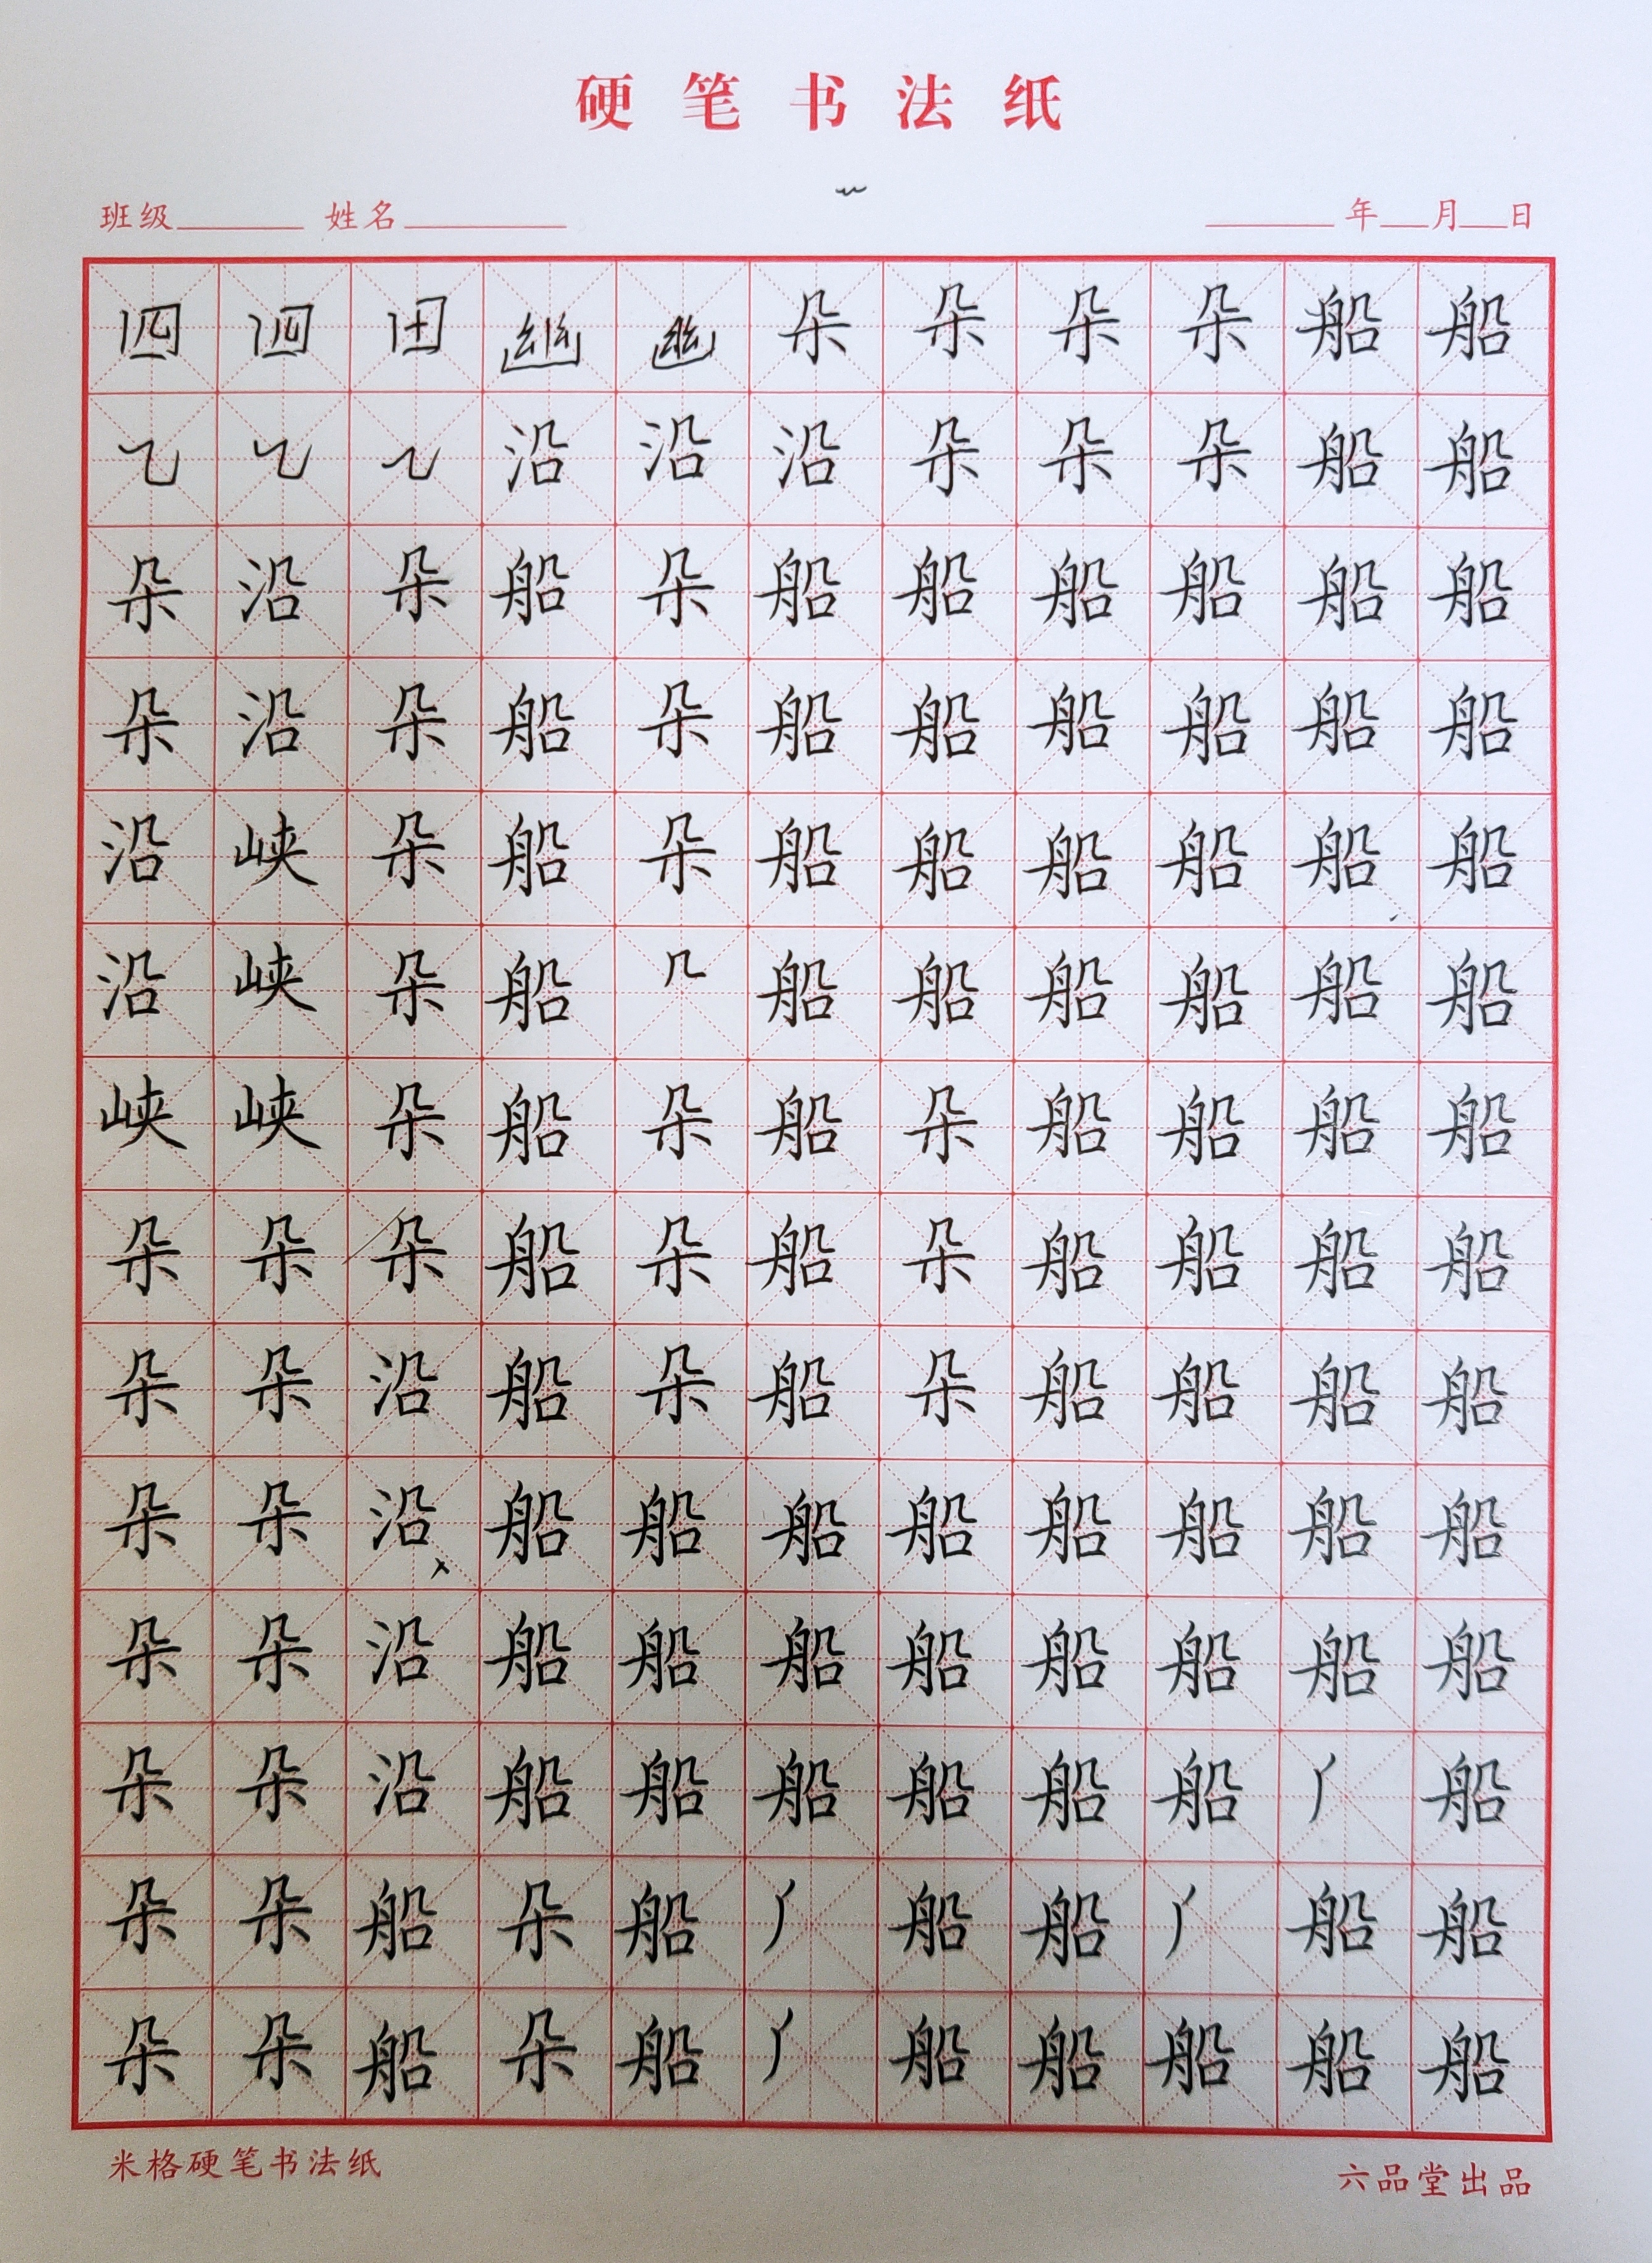 硬笔书法纸
班级 姓名 年 月 日
四 四 田 幽 幽 朵 朵 朵 朵 船 船
乙 乙 乙 沿 沿 沿 朵 朵 朵 船 船
朵 沿 朵 船 朵 船 船 船 船 船 船
朵 沿 朵 船 朵 船 船 船 船 船 船
沿 峡 朵 船 朵 船 船 船 船 船 船
沿 峡 朵 船 几 船 船 船 船 船 船
峡 峡 朵 船 朵 船 朵 船 船 船 船
朵 朵 朵 船 朵 船 朵 船 船 船 船
朵 朵 沿 船 朵 船 朵 船 船 船 船
朵 朵 沿 船 船 船 船 船 船 船 船
朵 朵 沿 船 船 船 船 船 船 船 船
朵 朵 沿 船 船 船 船 船 船 船
朵 朵 船 朵 船 船 船 船 船
朵 朵 船 朵 船 船 船 船 船 船
米格硬笔书法纸 六品堂出品